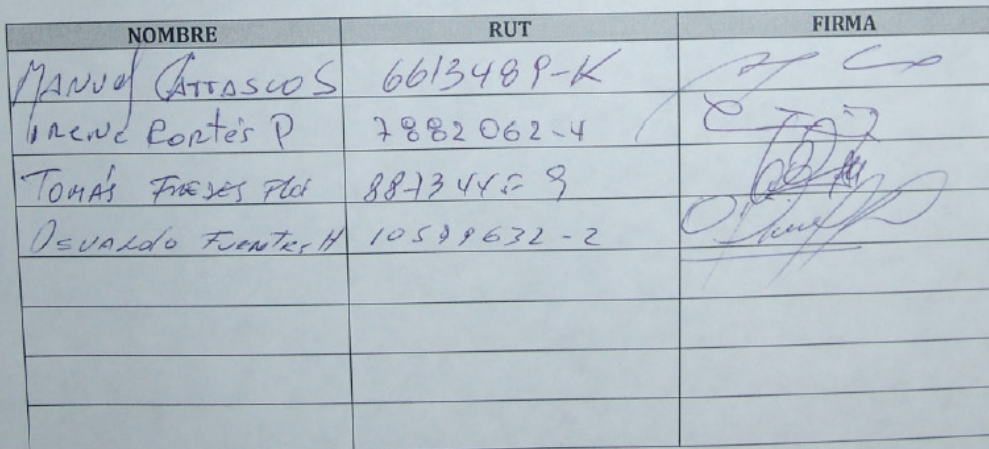 NOMBRE RUT FIRMA
MANUEL CARRASCO S 6613489-K
IRENE CORTÉS P 7882062-4
TOMÁS
OSVALDO FUENTES H 10579632-2